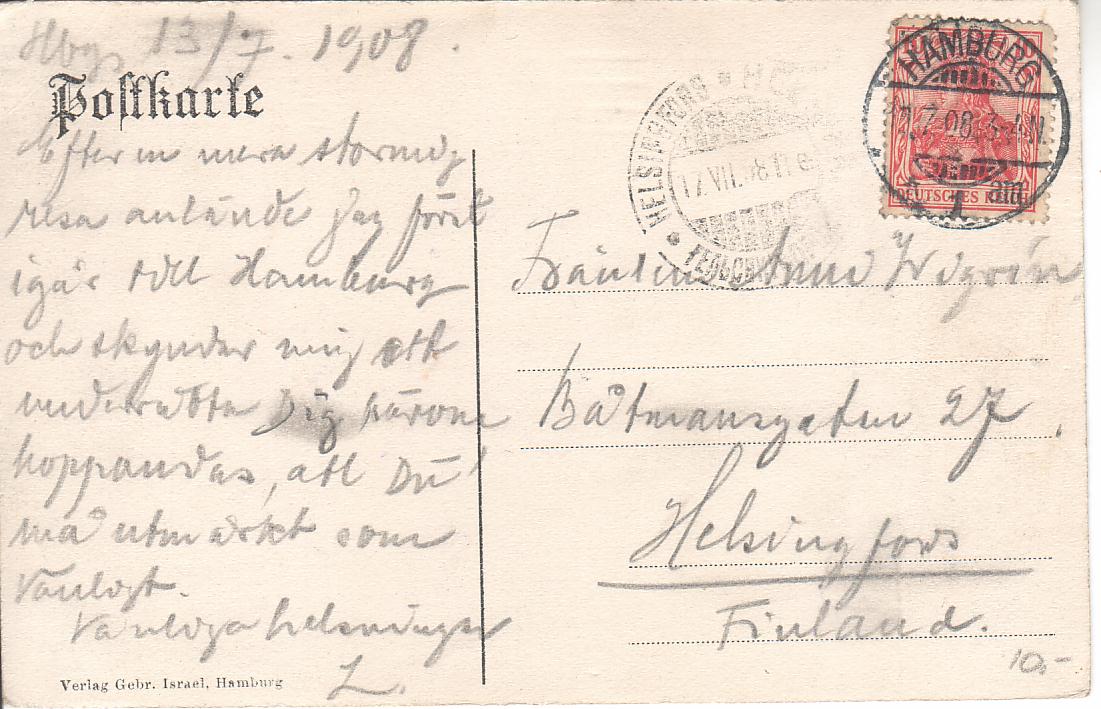 Hbg, 13/7. 1908.
Postkarte
Efter en mera stormig
resa anlände jag först
igår till Hamburg
och skyndar mig att
underrätta Dig
hoppandes, att Du
må utmärkt som
vanligt.
Vänliga helsningar
L.
Verlag Gebr. Israel, Hamburg
HAMBURG
7.08.3-4N.
1
DEUTSCHES REICH
HELSINGFORS
17.VII.08
Fräulein
Båtmansgatan 27.
Helsingfors
Finland.
10.-